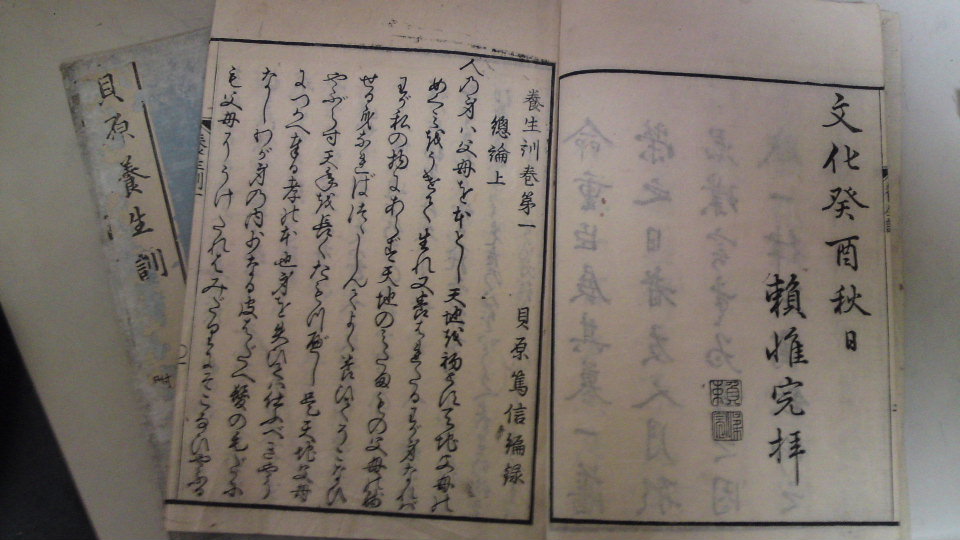 文化癸酉秋日
賴惟完拝
養生訓巻第一
貝原篤信編録
總論上
人乃身ハ父母を本とし天地を初とす天地父母の
めぐみをうけて生れ又養はれたるわが身なれば
わが私の物にあらず天地のみたまもの父母の残
せる身なればつゝしんでよく養ひてそこなひ
やぶらず天年を長くたもつべし是天地父母
につかへ奉る孝の本也身を失ひてハ仕ふべきやう
なしわが身の内少なる皮はだへ髪の毛だに
も父母にうけたればみだりにそこなひやぶる
貝原養生訓